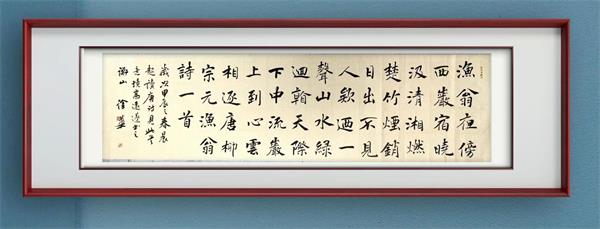 漁翁夜傍
西巖宿曉
汲清湘燃
楚竹煙銷
日出不見
人欸迺一
聲山水綠
迴看天際
下中流巖
上無心雲
相逐唐柳
宗元漁翁
詩一首
歲次甲辰之春晨
起讀唐詩見此
意境高遠遂書之
山 徐